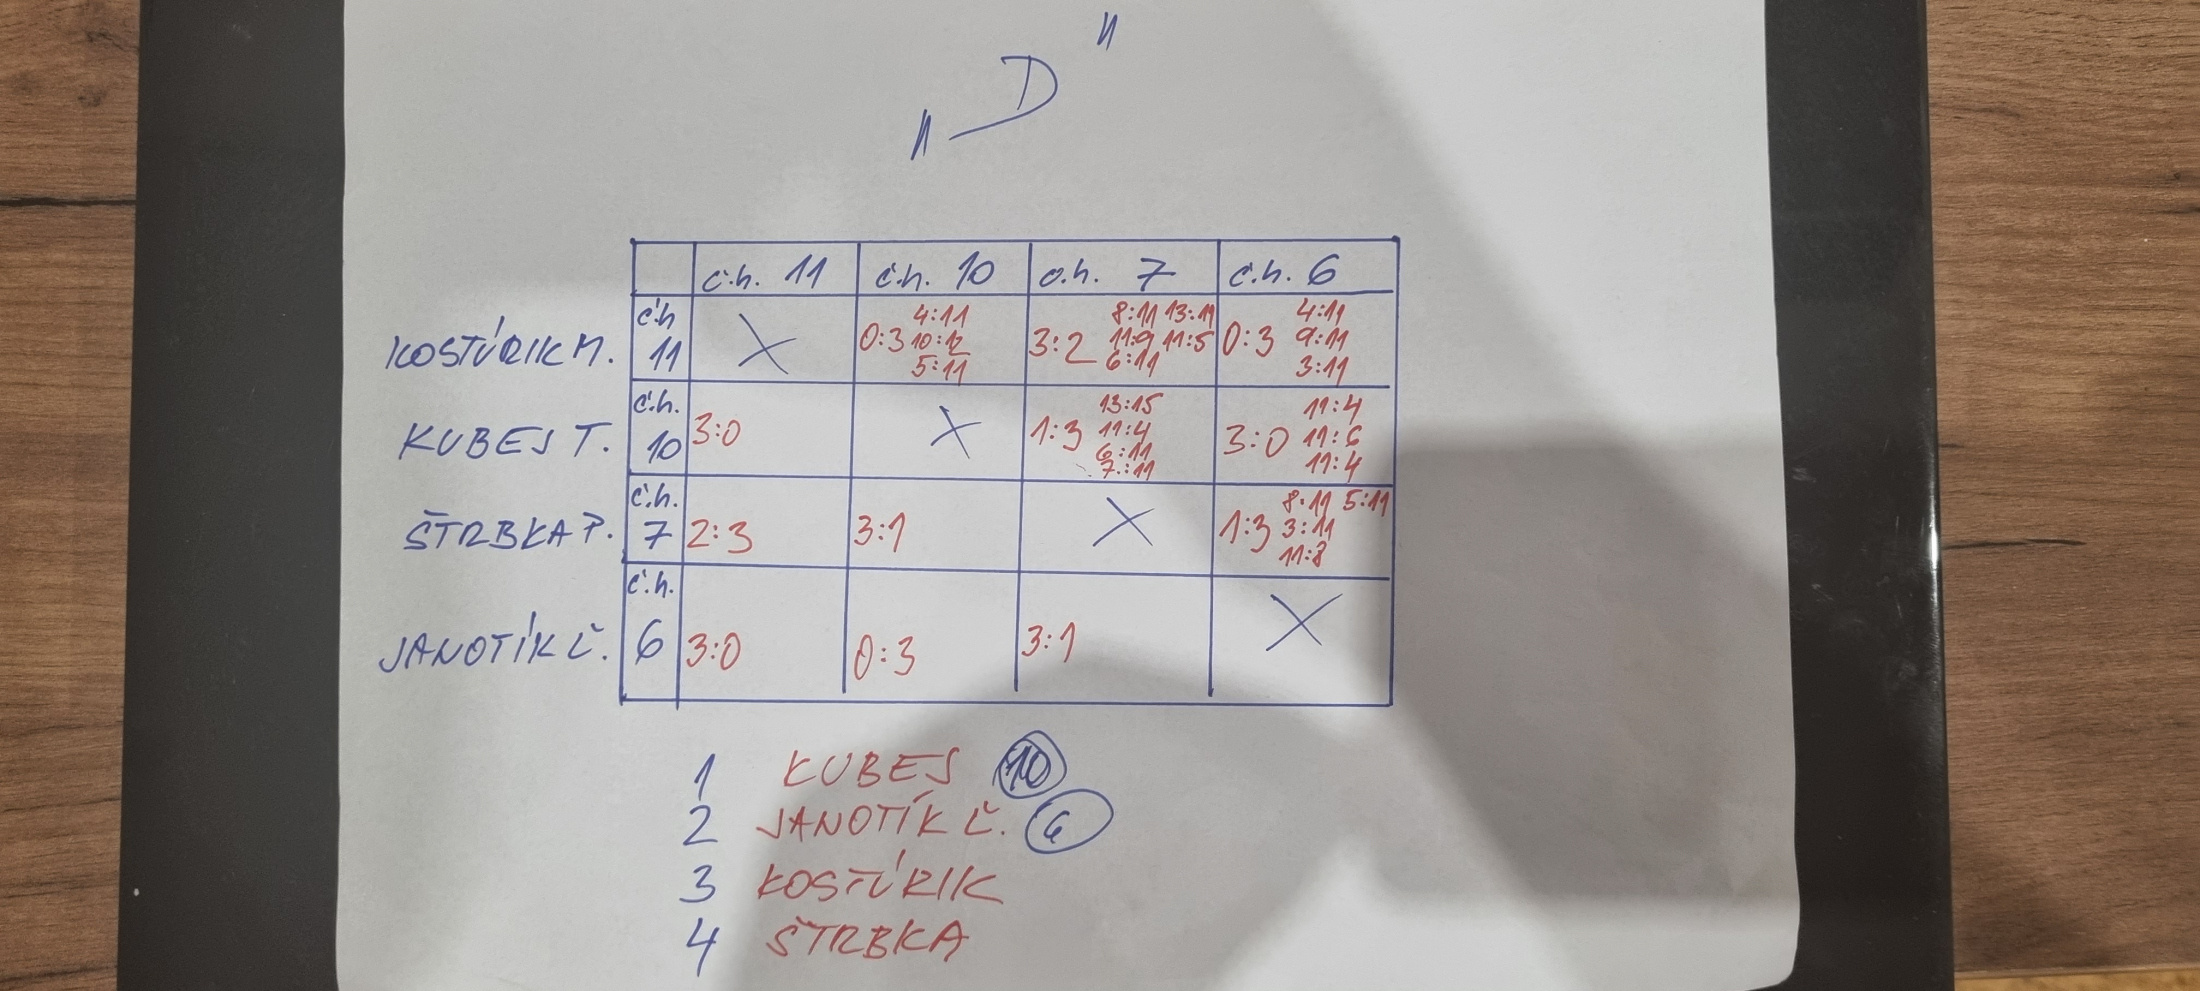 „D"
č.h. 11 č.h. 10 č.h. 7 č.h. 6
KOSTÚRIK M. č.h 11 X 0:3 4:11 10:12 5:11 3:2 8:11 13:11 11:9 11:5 6:11 0:3 4:11 9:11 3:11
KUBEJ T. č.h. 10 3:0 X 1:3 13:15 11:4 6:11 7:11 3:0 11:4 11:6 11:4
ŠTRBKA P. č.h. 7 2:3 3:1 X 1:3 8:11 5:11 3:11 11:8
JANOTÍK Ľ. č.h. 6 3:0 0:3 3:1 X
1 KUBEJ 10
2 JANOTÍK Ľ. 6
3 KOSTÚRIK
4 ŠTRBKA